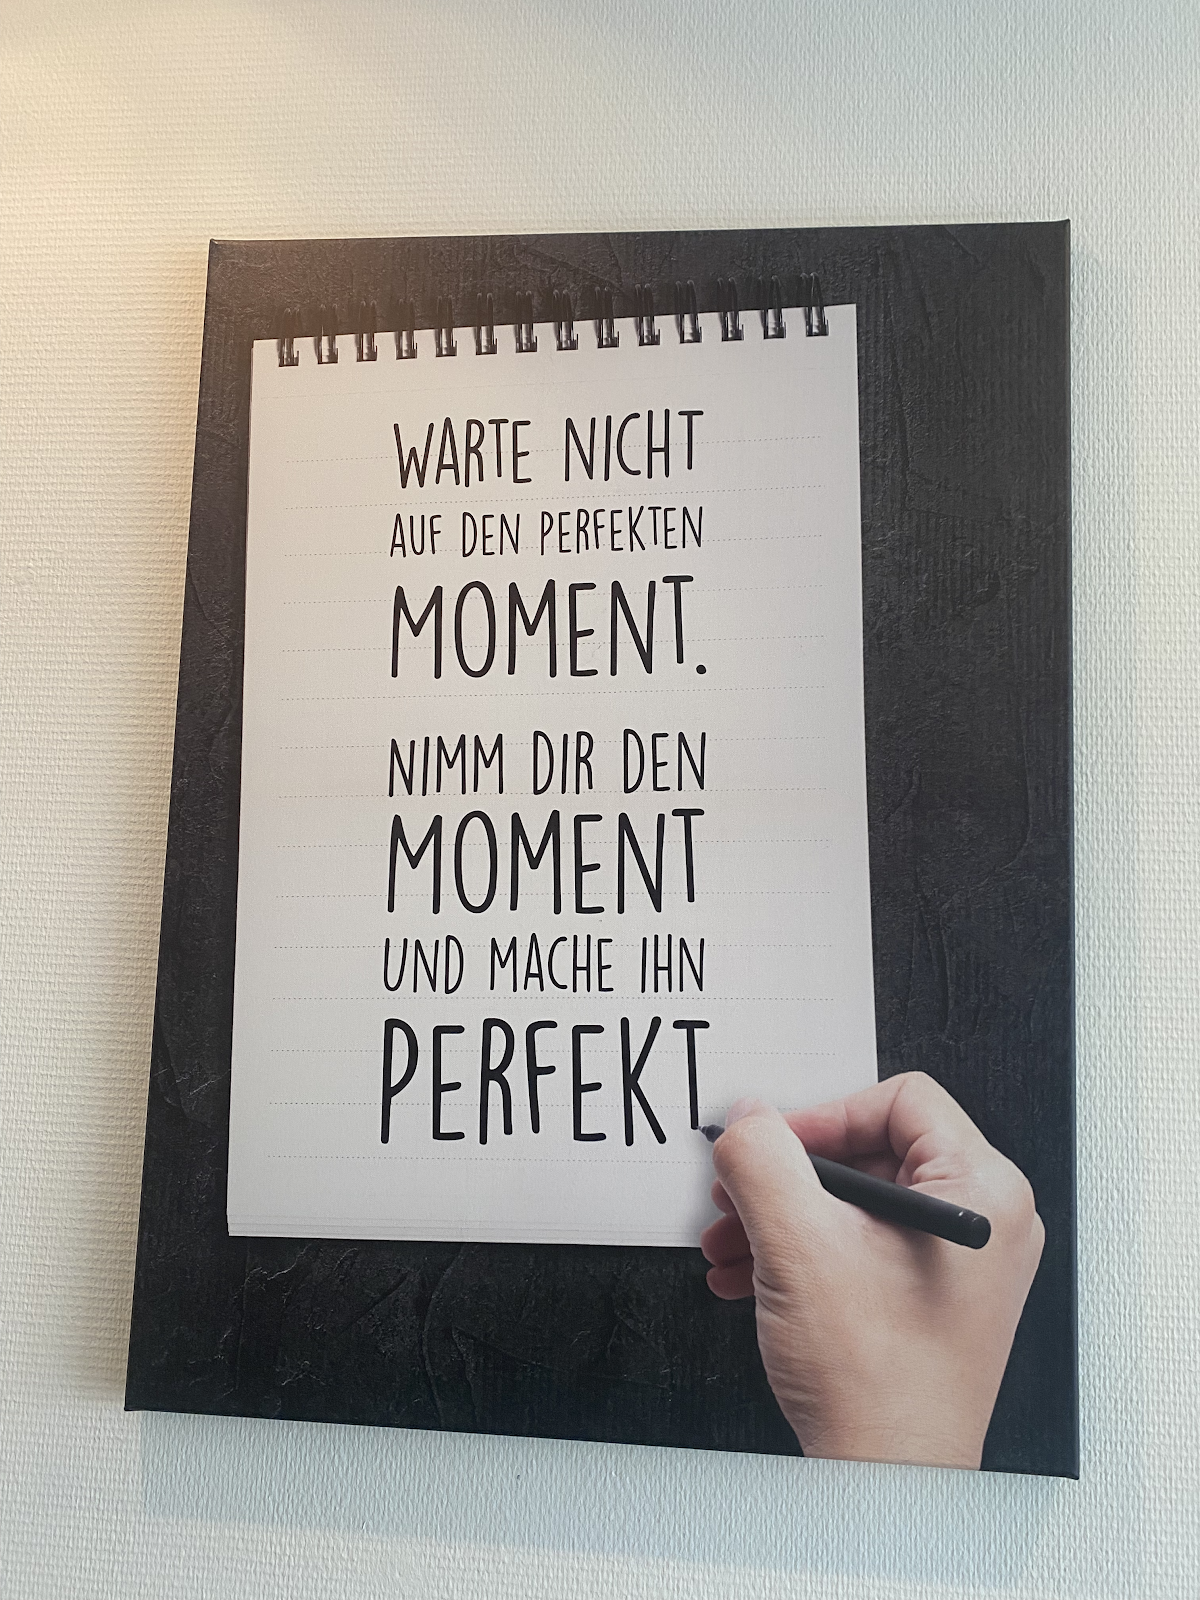 WARTE NICHT
AUF DEN PERFEKTEN
MOMENT.
NIMM DIR DEN
MOMENT
UND MACHE IHN
PERFEKT